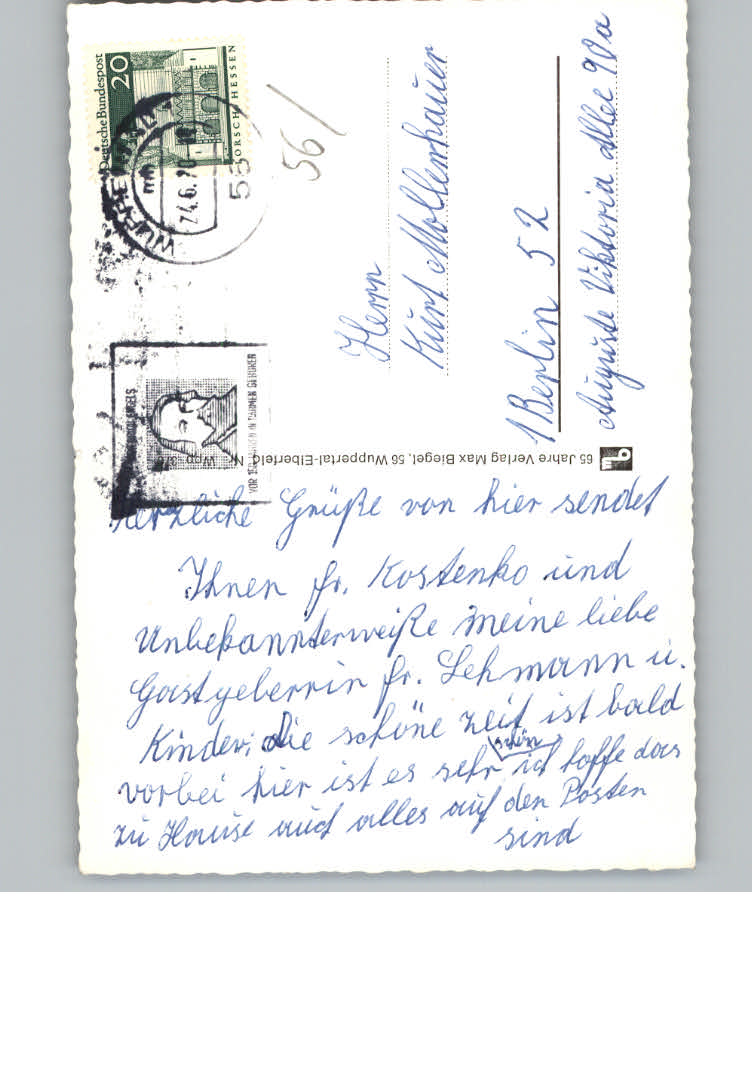 Herzliche Grüße von hier sendet
Ihnen fr. Kostenko und
Unbekannterweiße meine liebe
Gastgeberrin fr. Lehmann u.
Kinder, die schöne zeit ist bald
vorbei hier ist es sehr schön ich hoffe das
zu Hause auch alles auf den Posten
sind
Herrn
Kurt Mollenhauer
1 Berlin 52
Auguste Viktoria Allee 90a
56/
Deutsche Bundespost
20
LORSCH/HESSEN
WUPPERTAL
24.6.70
56
mh
VOR 150 JAHREN IN BARMEN GEBOREN
65 Jahre Verlag Max Biegel, 56 Wuppertal-Elberfeld, Nr. Wpp
mb